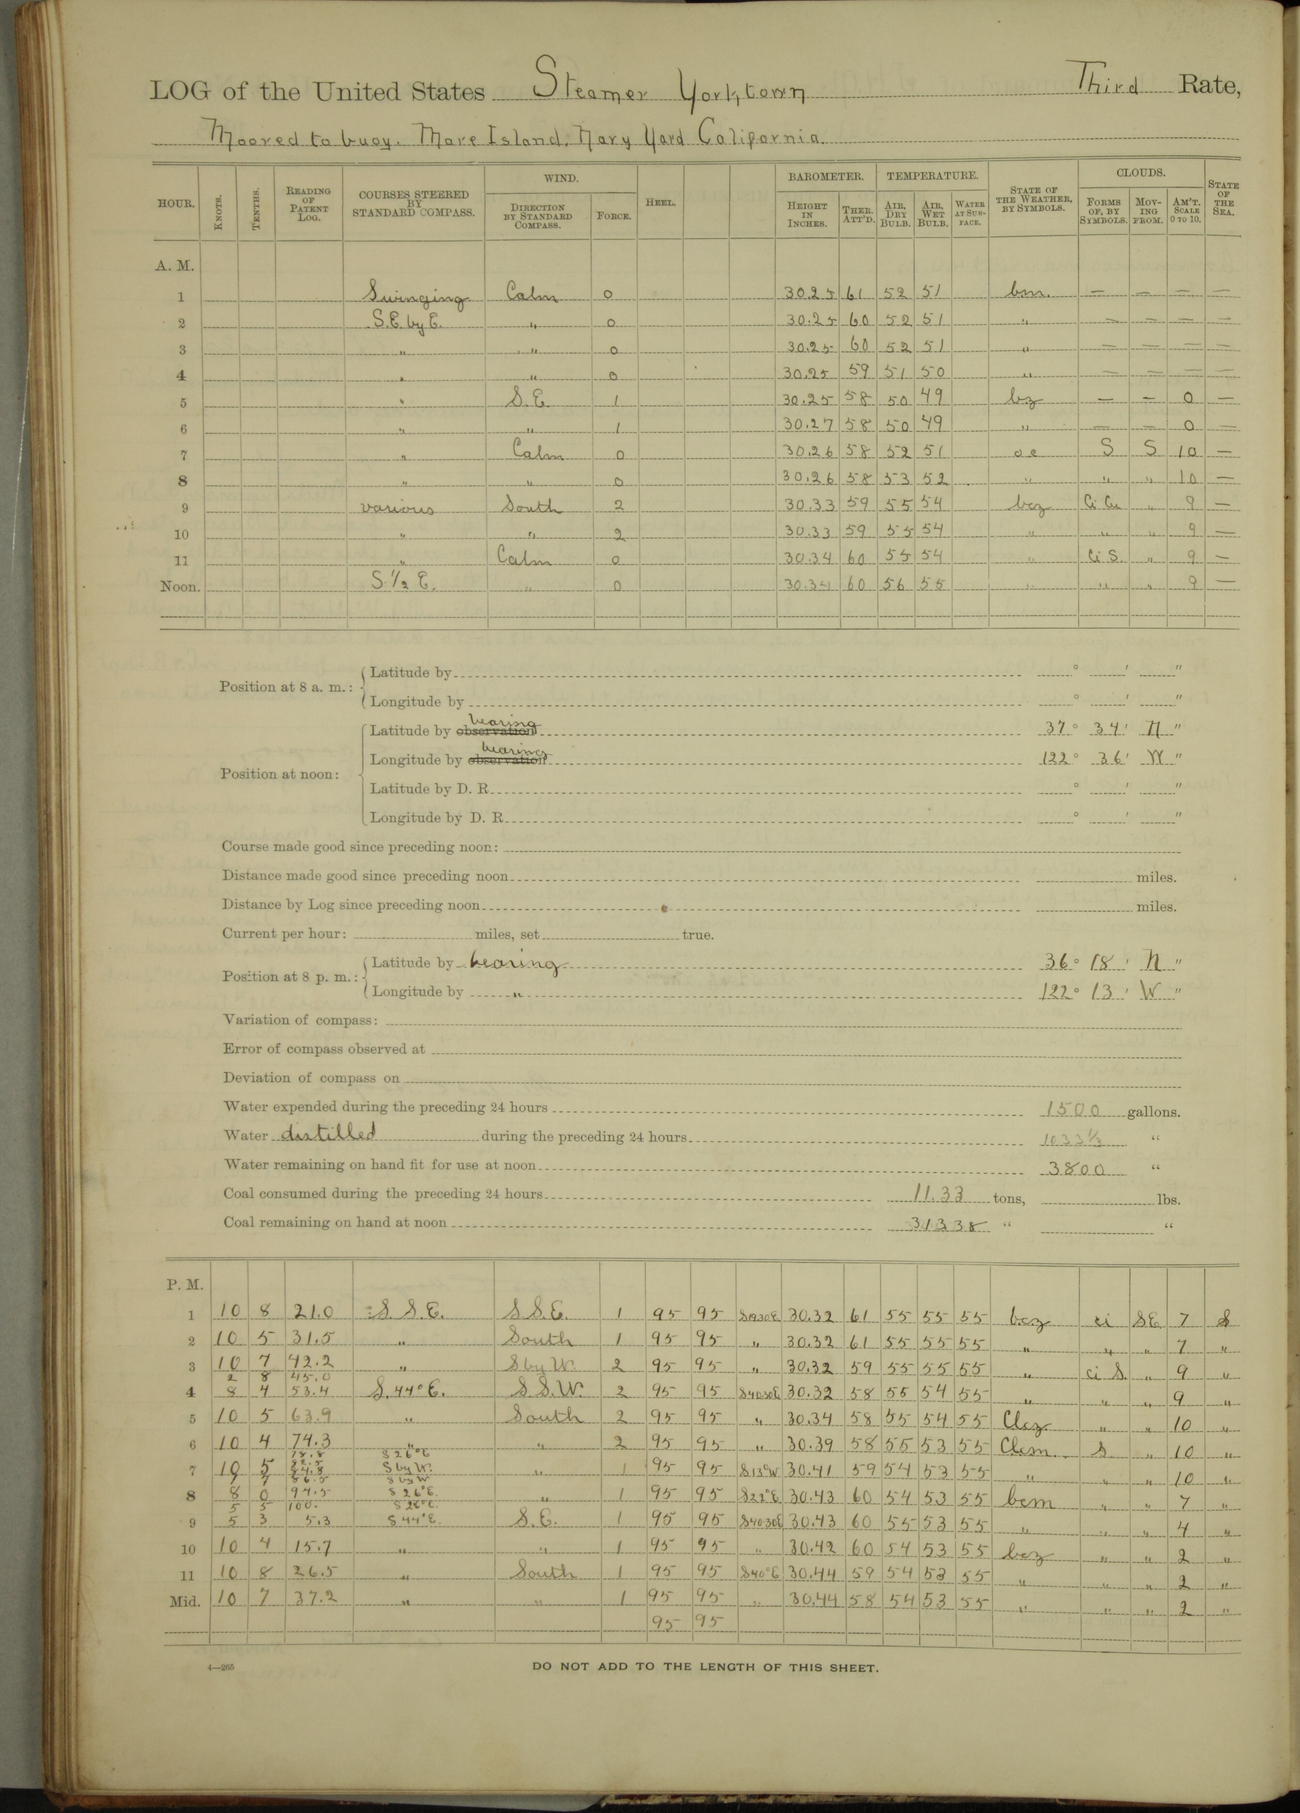 LOG of the United States Steamer Yorktown Third Rate,
Moored to buoy. Mare Island, Navy Yard California.
HOUR. KNOTS. TENTHS. READING OF PATENT LOG. COURSES STEERED BY STANDARD COMPASS. WIND. DIRECTION BY STANDARD COMPASS. FORCE. HEEL. BAROMETER. HEIGHT IN INCHES. THER. ATT'D. TEMPERATURE. AIR, DRY BULB. AIR, WET BULB. WATER AT SURFACE. STATE OF THE WEATHER, BY SYMBOLS. CLOUDS. FORMS OF, BY SYMBOLS. MOVING FROM. AM'T. SCALE 0 TO 10. STATE OF THE SEA.
A. M.
1 Swinging Calm 0 30.25 61 52 51 bm. — — — —
2 S.E. by E. " 0 30.25 60 52 51 " — — — —
3 " " 0 30.25 60 52 51 " — — — —
4 " " 0 30.25 59 51 50 " — — — —
5 " S.E. 1 30.25 58 50 49 bz — — 0 —
6 " " 1 30.27 58 50 49 " — — 0 —
7 " Calm 0 30.26 58 52 51 oe S S 10 —
8 " " 0 30.26 58 53 52 " " 10 —
9 various South 2 30.33 59 55 54 bcz Ci Cu " 9 —
10 " " 2 30.33 59 55 54 " " " 9 —
11 " Calm 0 30.34 60 55 54 " Ci S. " 9 —
Noon. S. 1/2 E. " 0 30.34 60 56 55 " " " 9 —
Position at 8 a. m.: Latitude by ° ' "
Longitude by ° ' "
Position at noon: Latitude by observation bearing 37° 34' N "
Longitude by observation bearing 122° 36' W "
Latitude by D. R. ° ' "
Longitude by D. R. ° ' "
Course made good since preceding noon:
Distance made good since preceding noon miles.
Distance by Log since preceding noon miles.
Current per hour: miles, set true.
Position at 8 p. m.: Latitude by bearing 36° 18' N "
Longitude by " 122° 13' W "
Variation of compass:
Error of compass observed at
Deviation of compass on
Water expended during the preceding 24 hours 1500 gallons.
Water distilled during the preceding 24 hours 1033 1/3 "
Water remaining on hand fit for use at noon 3800 "
Coal consumed during the preceding 24 hours 11.33 tons, lbs.
Coal remaining on hand at noon 313 38 " "
P. M.
1 10 8 21.0 S.S.E. S.S.E. 1 95 95 30.32 61 55 55 55 bcz ci SE 7 S
2 10 5 31.5 " South 1 95 95 " 30.32 61 55 55 55 " " " 7 "
3 10 7 42.2 " S by W. 2 95 95 " 30.32 59 55 55 55 " ci S. " 9 "
2 8 45.0
4 8 4 53.4 S. 44° E. S.S.W. 2 95 95 S4030E 30.32 58 55 54 55 " " " 9 "
5 10 5 63.9 " South 2 95 95 " 30.34 58 55 54 55 " " 10 "
6 10 4 74.3 " " 2 95 95 " 30.39 58 55 53 55 S " 10 "
78.8 S 26° E
7 10 5 S by W. " 1 95 95 S13°W 30.41 59 54 53 55 " " " 10 "
S by W
8 8 0 94.5 S 26° E. " 1 95 95 30.43 60 54 53 55 bcm " " 7 "
5 5 100. S 26° E.
9 5 3 5.3 S 44° E. S.E. 1 95 95 S4030E 30.43 60 55 53 55 " " " 4 "
10 10 4 15.7 " " 1 95 95 " 30.42 60 54 53 55 bcz " " 2 "
11 10 8 26.5 " South 1 95 95 S40°E 30.44 59 54 53 55 " " " 2 "
Mid. 10 7 37.2 " " 1 95 95 " 30.44 58 54 53 55 " " " 2 "
95 95
4—265 DO NOT ADD TO THE LENGTH OF THIS SHEET.